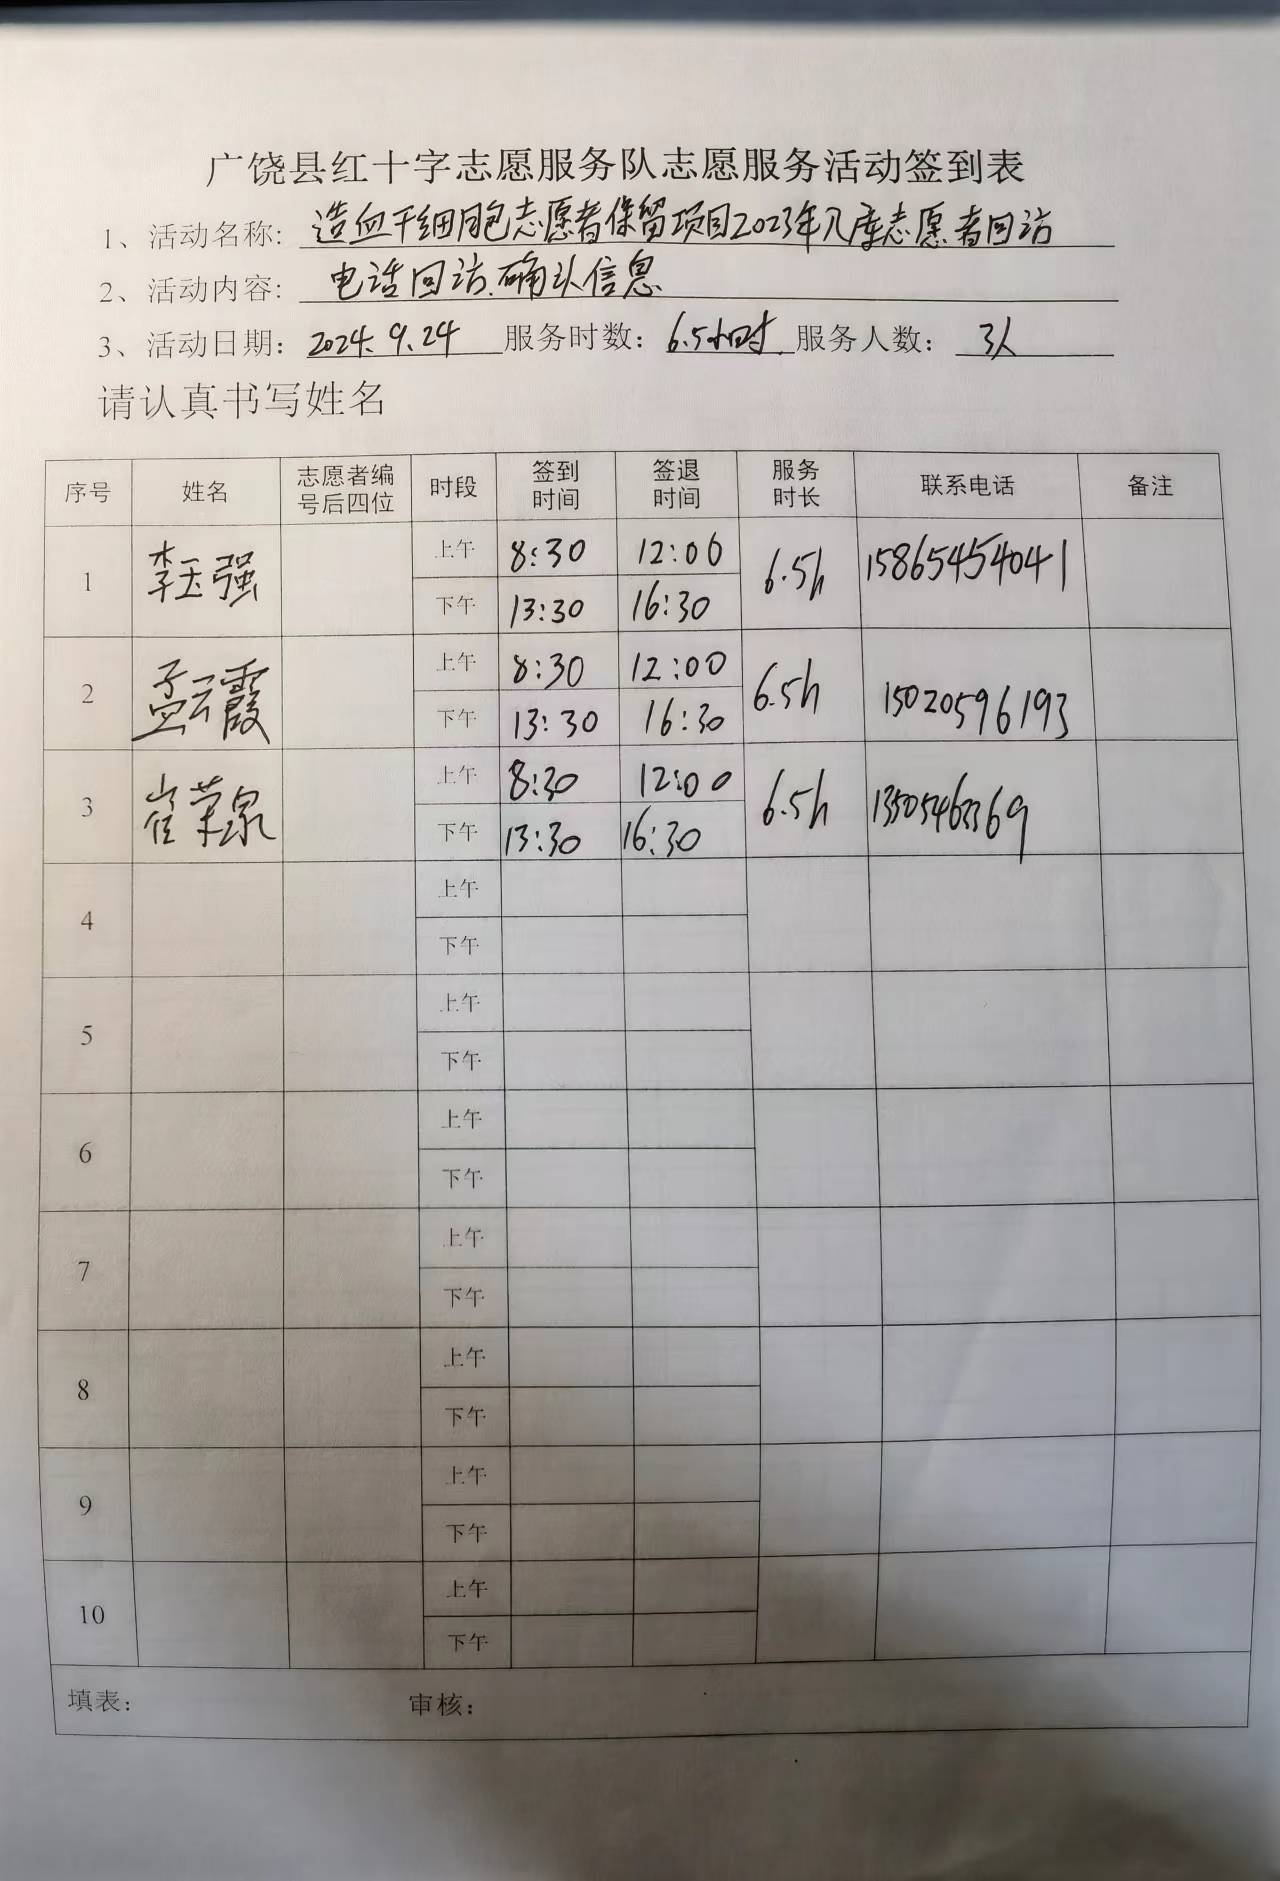 广饶县红十字志愿服务队志愿服务活动签到表
1、活动名称: 造血干细胞志愿者保留项目2023年入库志愿者回访
2、活动内容: 电话回访.确认信息
3、活动日期: 2024.9.24 服务时数: 6.5小时. 服务人数: 3人
请认真书写姓名
序号 姓名 志愿者编号后四位 时段 签到时间 签退时间 服务时长 联系电话 备注
1 李玉强 上午 8:30 12:00 6.5h 15865454041
下午 13:30 16:30
2 孟云霞 上午 8:30 12:00 6.5h 15020596193
下午 13:30 16:30
3 崔荣泉 上午 8:30 12:00 6.5h 13505463369
下午 13:30 16:30
4 上午
下午
5 上午
下午
6 上午
下午
7 上午
下午
8 上午
下午
9 上午
下午
10 上午
下午
填表: 审核: